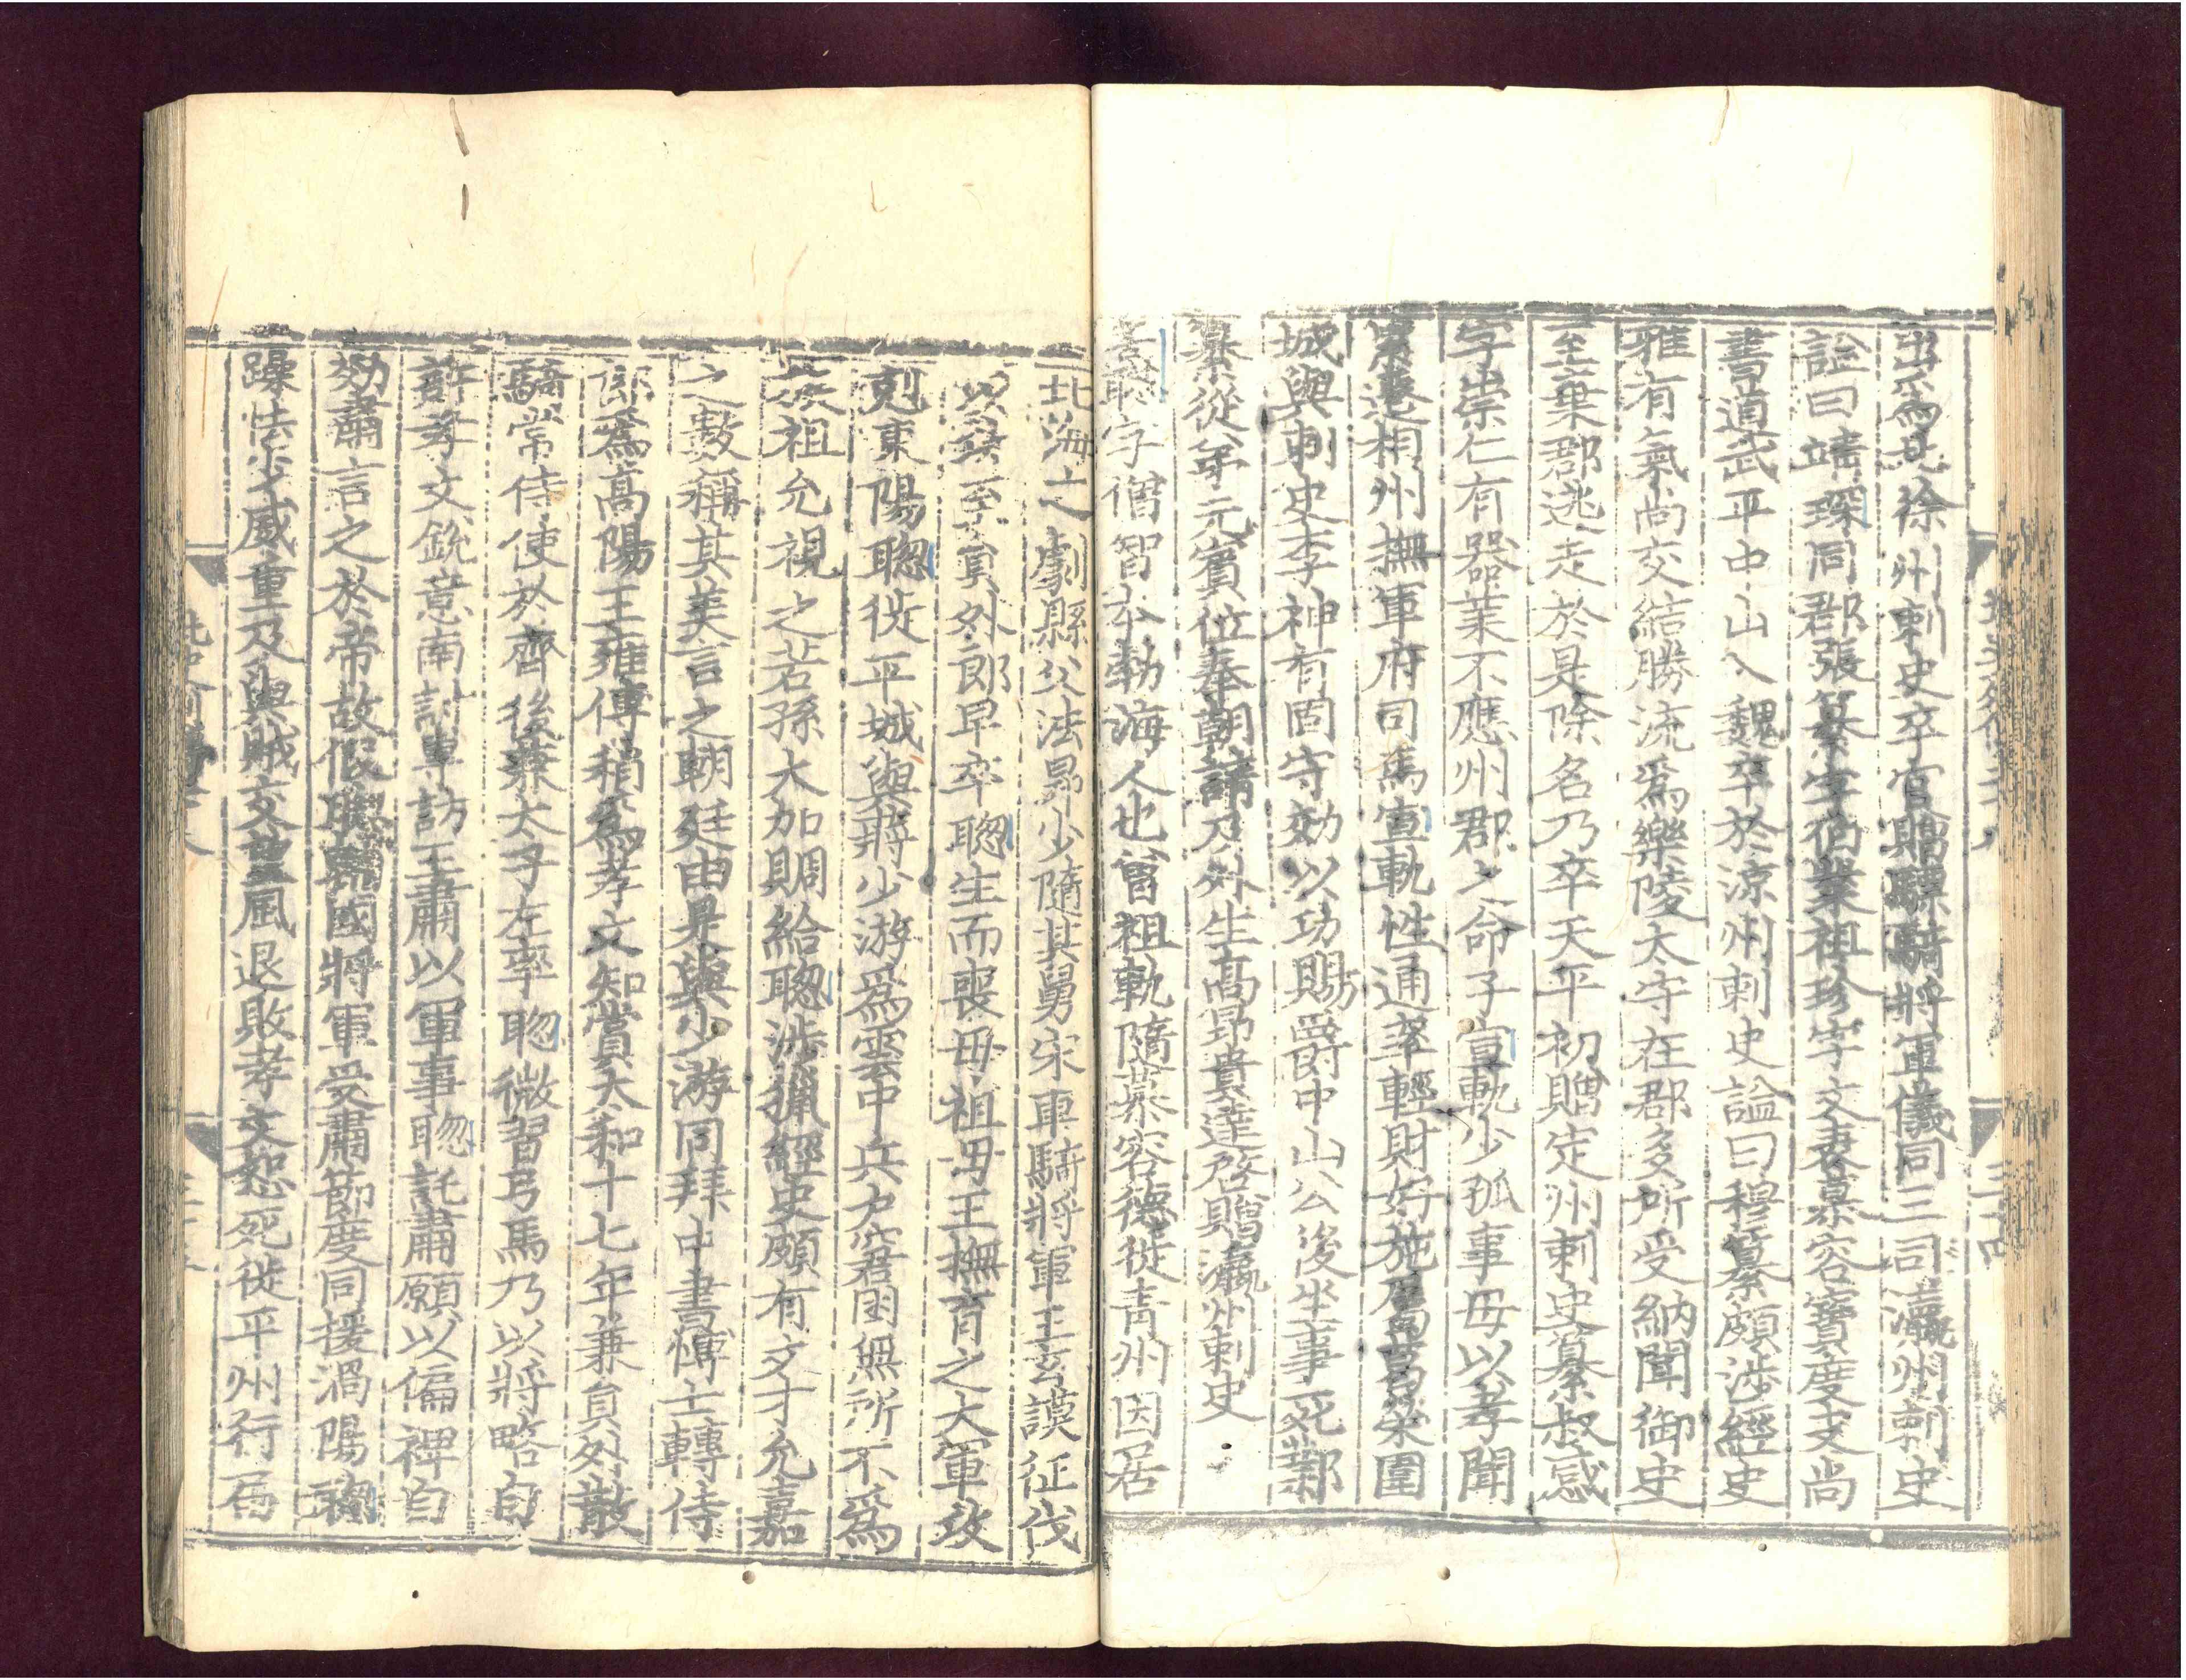 出爲北徐州刺史卒官贈驃騎將軍儀同三司瀛州刺史
諡曰靖琛同郡張纂字伯業祖珍字文表慕容寶度支尚
書道武平中山入魏卒於涼州刺史諡曰穆纂頗涉經史
雅有氣尚交結勝流爲樂陵太守在郡多所受納聞御史
至棄郡逃走於是除名乃卒天平初贈定州刺史纂叔感
字崇仁有器業不應州郡之命子宣軌少孤事母以孝聞
累遷相州撫軍府司馬宣軌性通率輕財好施屬葛榮圍
城與刺史李神有固守効以功賜爵中山公後坐事死鄴
纂從弟元賓位奉朝請及外生高昻貴達啓贈瀛州刺史
高聦字僧智本勃海人也曾祖軌隨慕容德徙青州因居
北海之劇縣父法昻少隨其舅宋車騎將軍王玄謨征伐
以功至員外郎早卒聦生而喪母祖母王撫育之大軍攻
剋東陽聦徙平城與蔣少游爲雲中兵戶窘困無所不爲
族祖允視之若孫大加賙給聦涉獵經史頗有文才允嘉
之數稱其美言之朝廷由是與少游同拜中書博士轉侍
郎爲高陽王雍傅稍爲孝文知賞太和十七年兼員外散
騎常侍使於齊後兼太子左率聦微習弓馬乃以將略自
許孝文銳意南討專訪王肅以軍事聦託肅願以偏裨自
効肅言之於帝故假聦輔國將軍受肅節度同援渦陽聦
躁怯少威重及與賊交望風退敗孝文恕死徙平州行届